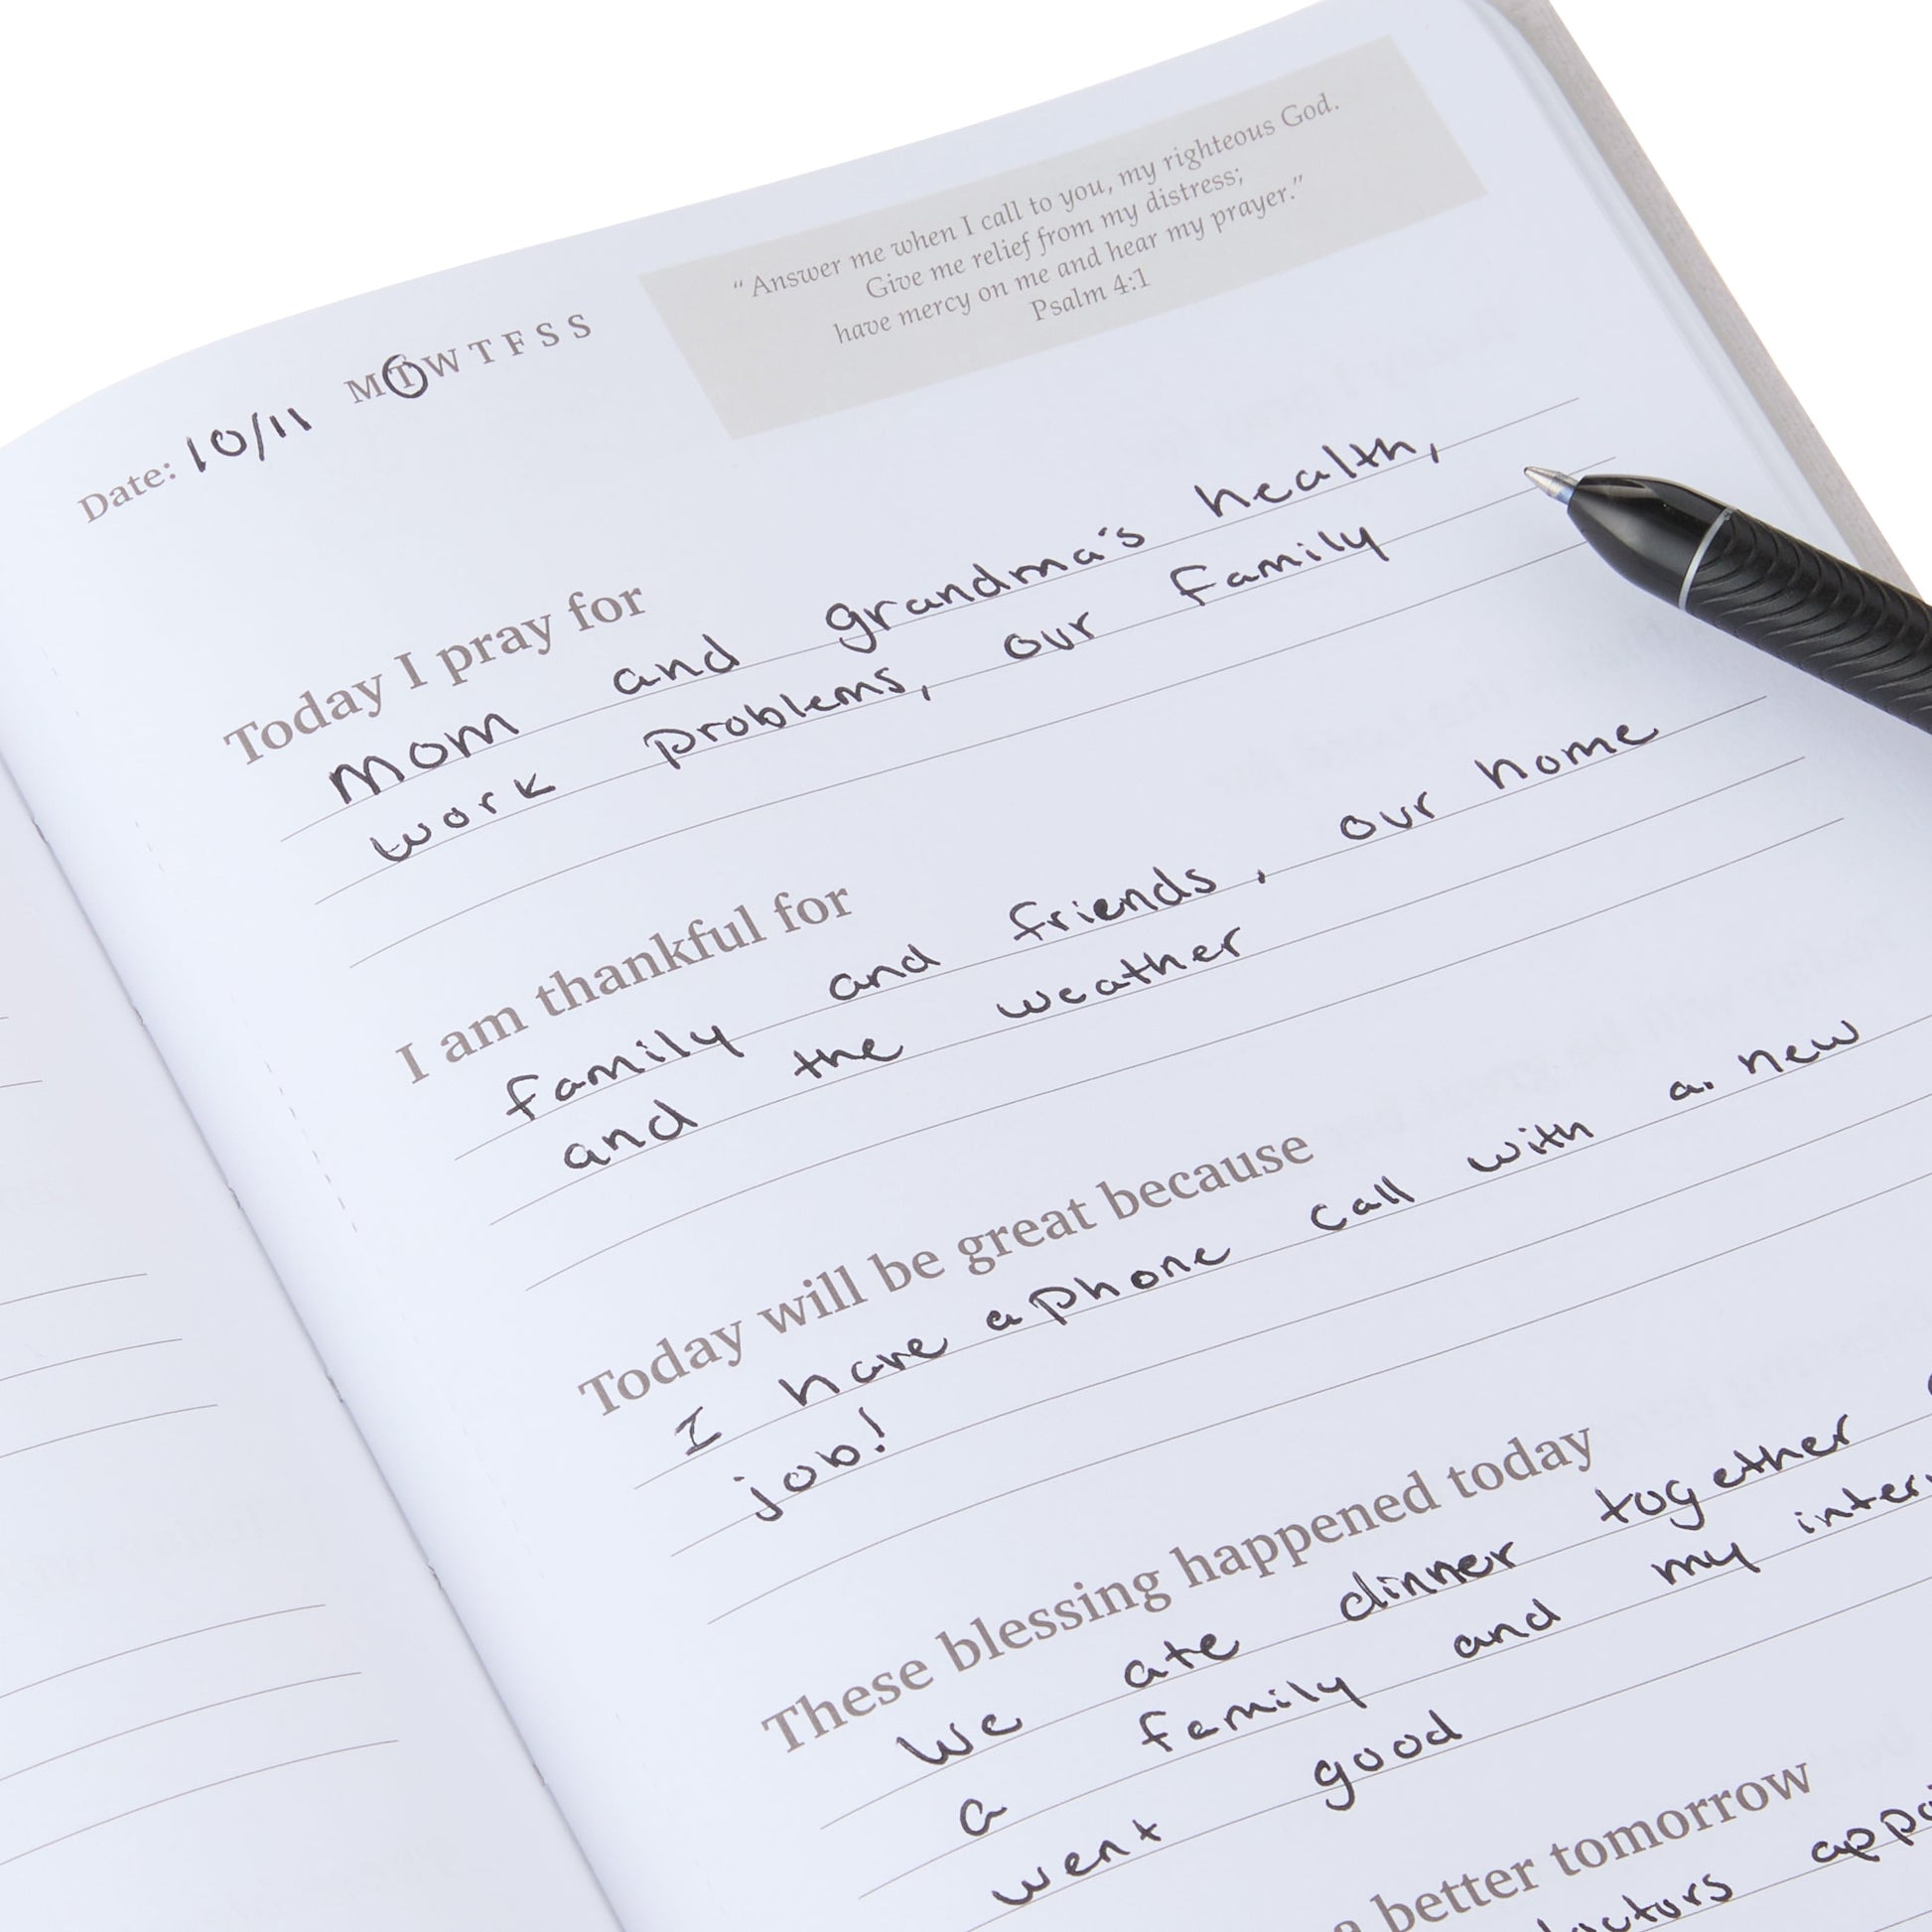 "Answer me when I call to you, my righteous God.
Give me relief from my distress;
have mercy on me and hear my prayer."
Psalm 4:1
Date: 10/11 M T W T F S S
Today I pray for
Mom and grandma's health,
work problems, our family
I am thankful for
family and friends, our home
and the weather
Today will be great because
I have a phone call with a. new
job!
These blessing happened today
We ate dinner together
a family and my inter
went good
a better tomorrow